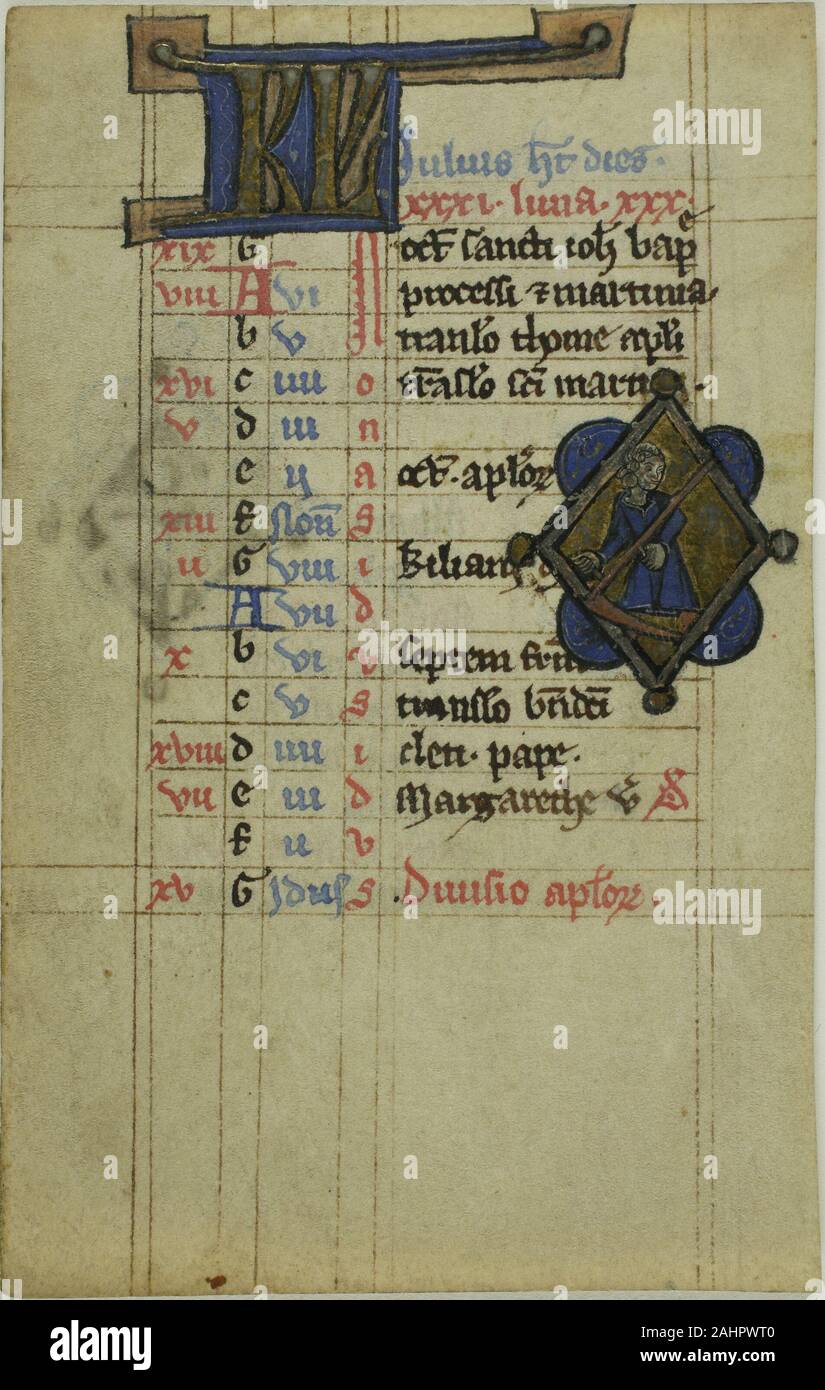 KL Julius ht dies.
xxxi. luna. xxx.
xix G oct sancti ioh bapt
viii A vi N processi ⁊ martinia
b v translo thome apli
xvi c iiii o traslo sci martin
v d iii n
e ii a oct. aplor
xiii f Non s
ii G viii i kiliani
A vii d
x b vi v septem frm
c v s translo bndci
xviii d iiii i cleti. pape.
vii e iii d Margarethe v S
f ii v
xv G Idus s Diuisio aplor.
alamy
Image ID: 2AHPWT0
www.alamy.com